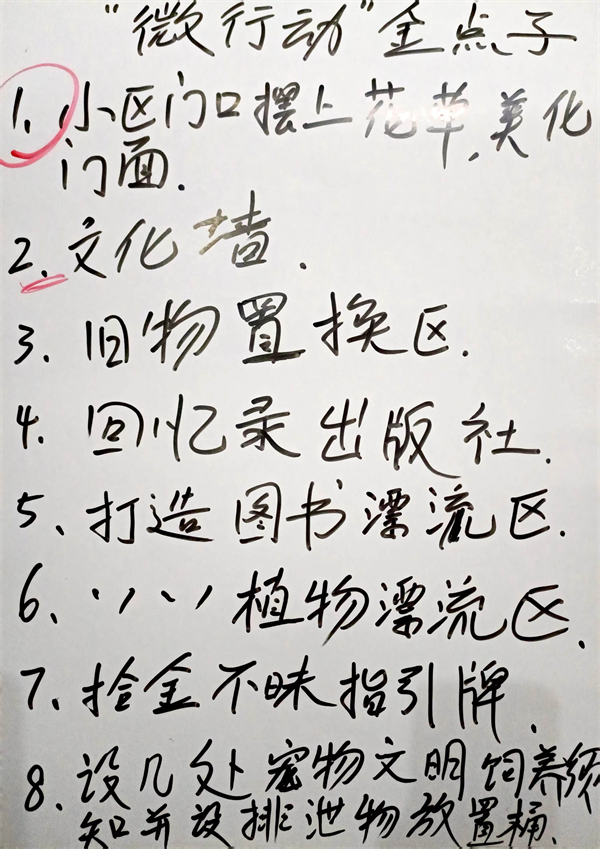 “微行动”金点子
1、小区门口摆上花草,美化
门面.
2.文化墙.
3.旧物置换区.
4.回忆录出版社.
5、打造图书漂流区.
6、〃〃植物漂流区.
7、拾金不昧指引牌.
8、设几处宠物文明饲养须
知并设排泄物放置桶.